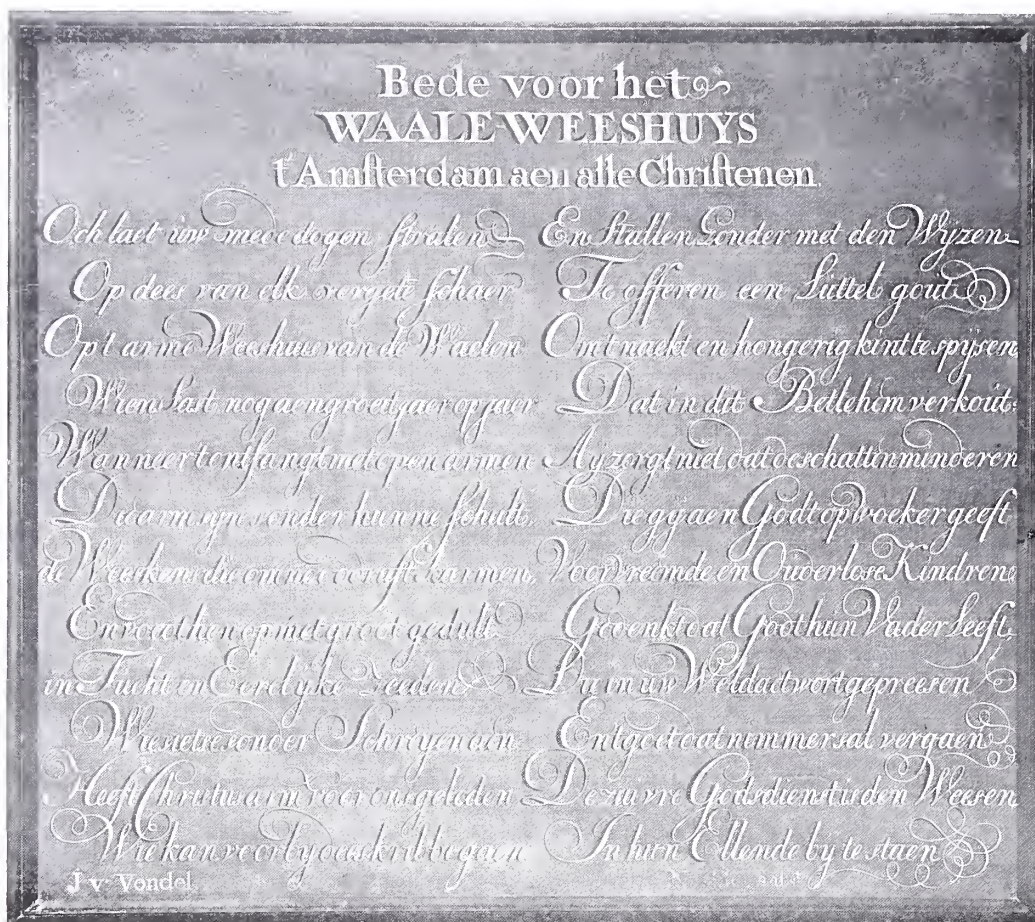 Bede voor het
WAALE-WEESHUYS
t'Amsterdam aen alle Christenen.
Och laet uw mededogen stralen
Op dees van elk vergete schaer
Op t arme Weeshuis van de Waelen
Wiens Last nog aengroeit jaer op jaer
Wanneer t ontfangt met open armen
De arm zyn sonder hunne schult.
de Weeskens die om nootdruft karmen,
En voet hen op met groot gedult
in Tucht en Eerelijke Zeeden
Wie siet se sonder Schreyen aen
Heeft Christus arm voor ons geleden
Wie kan voorby dees kribbe gaen
En Stallen Sonder met den Wijzen
Te offeren een Luttel gout
Om t naekt en hongerig kint te spijsen
Dat in dit Betlehem verkout:
Ay zorgt niet, dat de schatt'n minderen
Die gy aen Godt op woeker geeft
Voor vreemde en Ouderlose Kindren:
Gedenkt dat Godt hun Vader Leeft,
Die in uw Weldaet wort gepreesen
En tgoet dat nimmer sal vergaen
De zuivre Godsdienst is den Weesen
In hun Ellende by te staen
J v. Vondel.